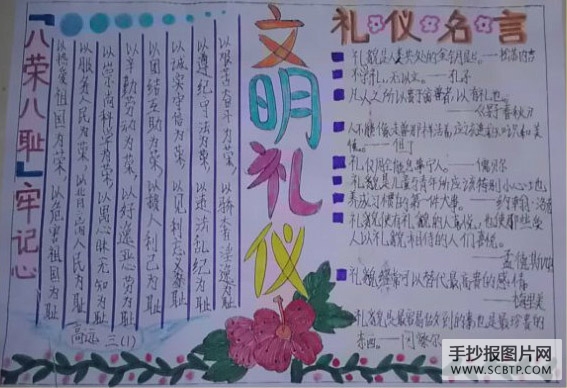 「八荣八耻」牢记心
以热爱祖国为荣,以危害祖国为耻
以服务人民为荣,以背离人民为耻
以崇尚科学为荣,以愚昧无知为耻
以辛勤劳动为荣,以好逸恶劳为耻
以团结互助为荣,以损人利己为耻
以诚实守信为荣,以见利忘义为耻
以遵纪守法为荣,以违法乱纪为耻
以艰苦奋斗为荣,以骄奢淫逸为耻
三(1)
文明礼仪
礼仪名言
礼貌是人类共处的金钥匙。——松苏内吉
不学礼,无以立。——孔子
凡人之所以贵于禽兽者,以有礼也。
——《晏子春秋》
——但丁
礼貌是儿童与青年所应该特别小心地
养成习惯的第一件大事。——约翰·洛克
礼貌使有礼貌的人喜悦,也使那些受
人以礼貌相待的人们喜悦。
——孟德斯鸠
礼貌经常可以替代最高贵的感情
——梅里美
礼貌是最容易做到的事,也是最珍贵的
东西。——冈察尔
手抄报图片网
WWW.SCBTP.COM